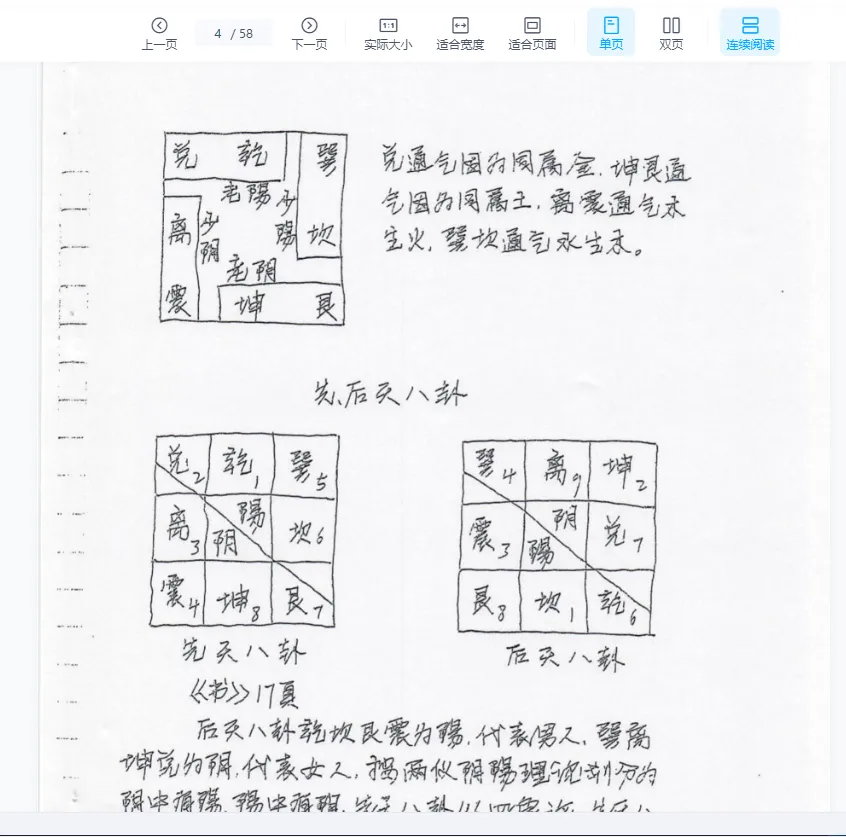 上一页
4 / 58
下一页
1:1
实际大小
适合宽度
适合页面
单页
双页
连续阅读
兑 乾 巽
老陽 少陽
离 少阴 坎
老阴
震 坤 艮
兑通气因为同属金.坤艮通
气因为同属土.离震通气木
生火,巽坎通气水生木。
先、后天八卦
兑2 乾1 巽5
离3 阴 陽 坎6
震4 坤8 艮7
先天八卦
巽4 离9 坤2
震3 陽 阴 兑7
艮8 坎1 乾6
后天八卦
《书》17頁
后天八卦乾坎艮震为陽,代表男人,巽离
坤兑为阴,代表女人,按两仪阴陽理论划分的
阴中有陽,陽中有阴,先天八卦以四象